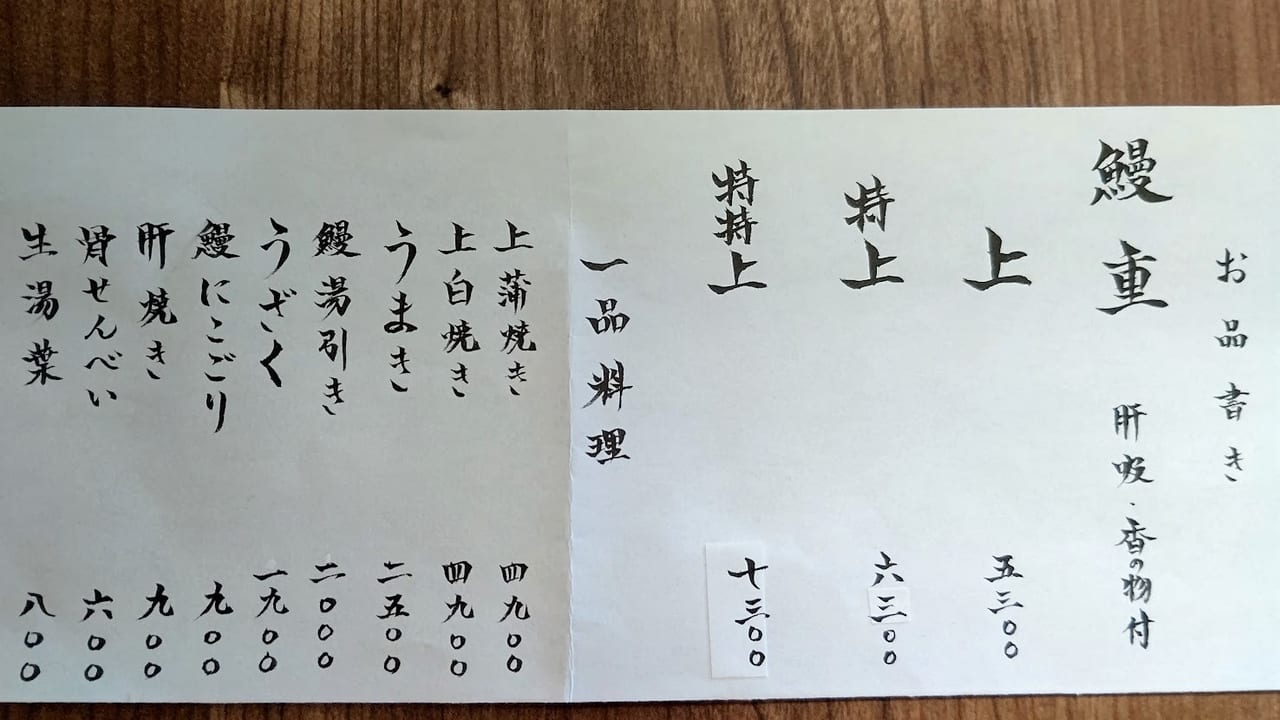 お品書き
鰻重 肝吸・香の物付
上 五三〇〇
特上 六三〇〇
特特上 七三〇〇
一品料理
上蒲焼き 四九〇〇
上白焼き 四九〇〇
うまき 二五〇〇
鰻湯引き 二〇〇〇
うざく 一九〇〇
鰻にこごり 九〇〇
肝焼き 九〇〇
骨せんべい 六〇〇
生湯葉 八〇〇